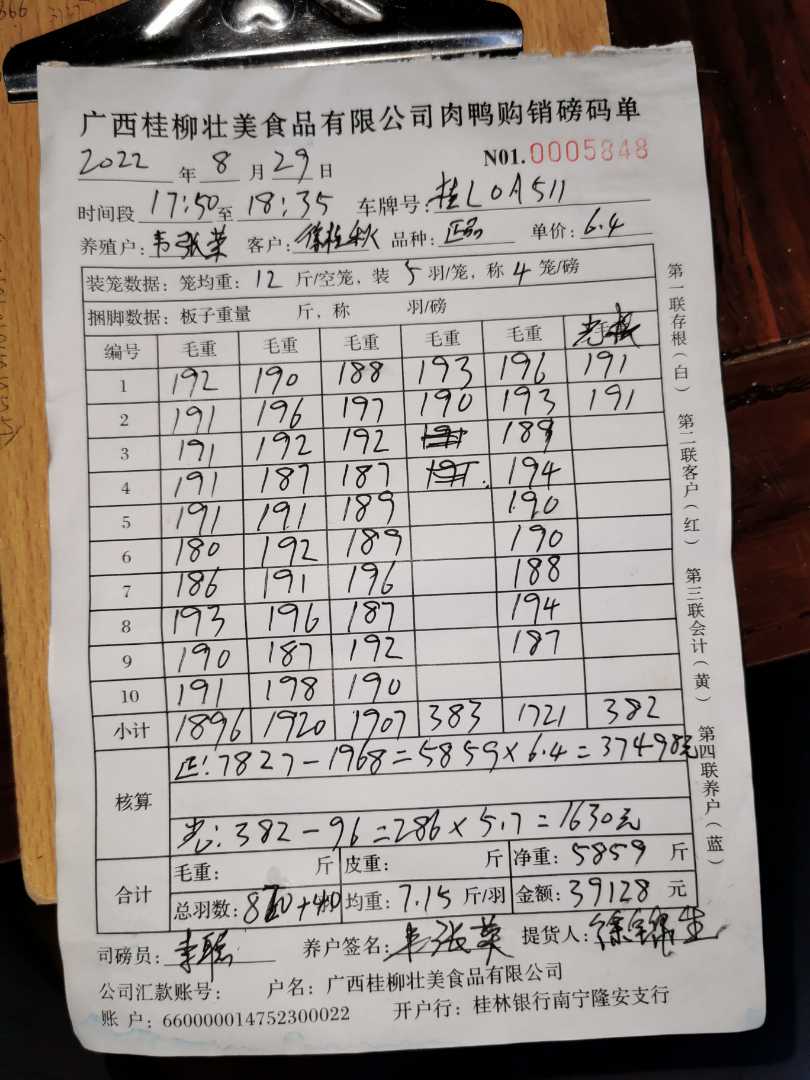 广西桂柳壮美食品有限公司肉鸭购销磅码单
2022 年 8 月 29 日 N01.0005848
时间段 17:50 至 18:35 车牌号: 桂L0A511
养殖户: 韦张荣 客户: 徐桂秋 品种: 正品 单价: 6.4
装笼数据: 笼均重: 12 斤/空笼, 装 5 羽/笼, 称 4 笼/磅
捆脚数据: 板子重量 斤, 称 羽/磅
编号 毛重 毛重 毛重 毛重 毛重
1 192 190 188 193 196 191
2 191 196 197 190 193 191
3 191 192 192 191 189
4 191 187 187 191 194
5 191 191 189 190
6 180 192 189 190
7 186 191 196 188
8 193 196 187 194
9 190 187 192 187
10 191 198 190
小计 1896 1920 1907 383 1721 382
核算
正: 7827-1968=5859×6.4=37498元
光: 382-96=286×5.7=1630元
合计
毛重: 斤 皮重: 斤 净重: 5859 斤
总羽数: 820+40 均重: 7.15 斤/羽 金额: 39128 元
司磅员: 养户签名: 韦张荣 提货人:
公司汇款账号: 户名: 广西桂柳壮美食品有限公司
账 户: 660000014752300022 开户行: 桂林银行南宁隆安支行
第一联存根(白) 第二联客户(红) 第三联会计(黄) 第四联养户(蓝)